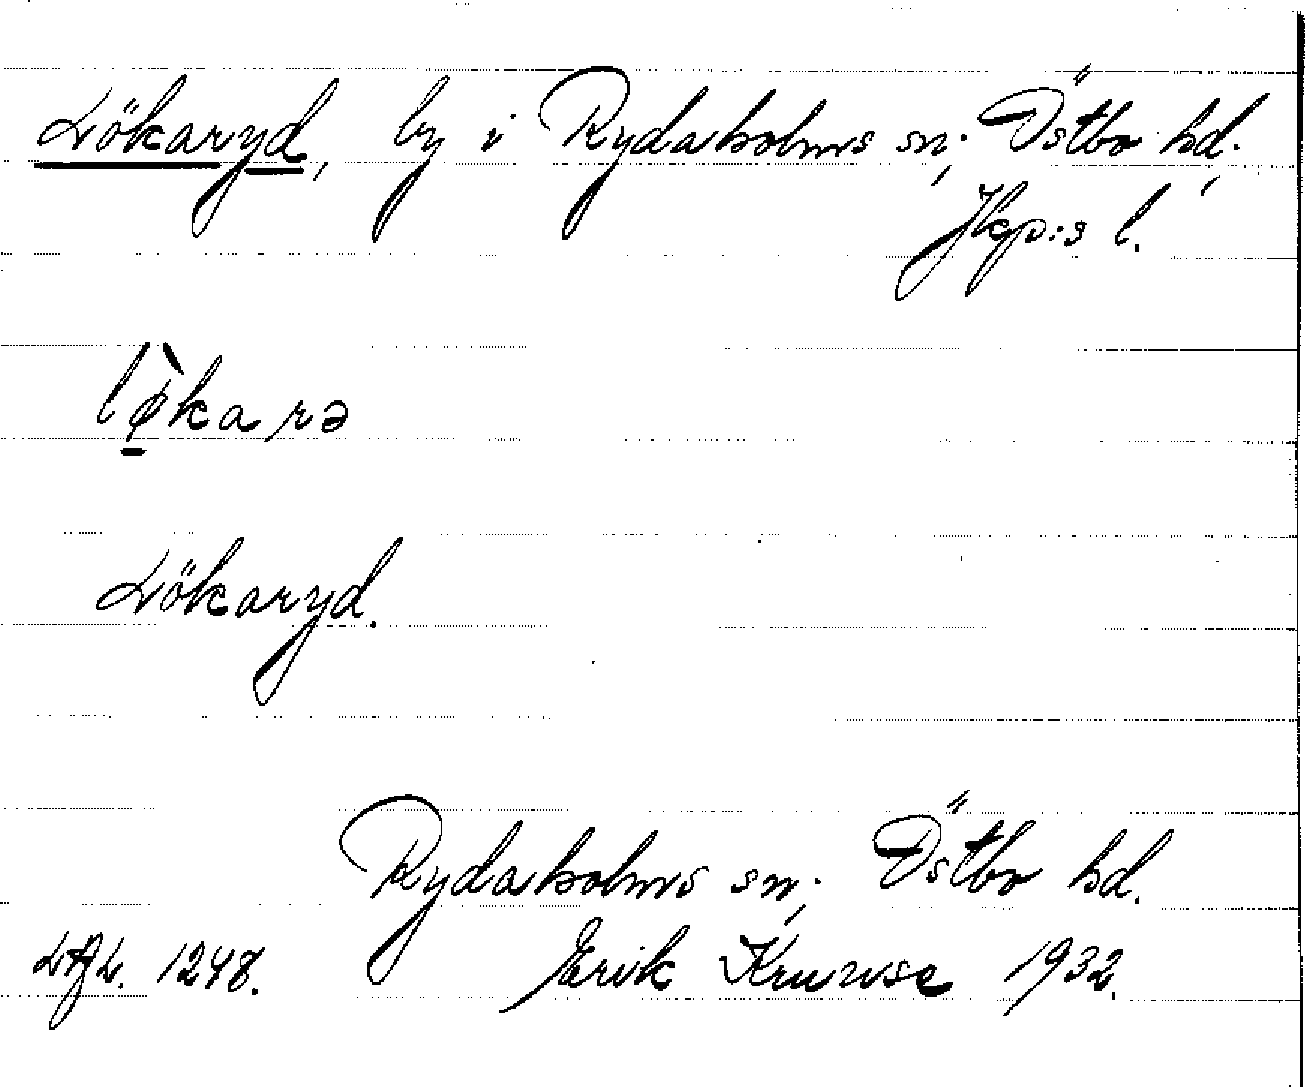 Lökaryd, by i Rydaholms sn; Östbo hd.,
Jkp:s l.
lø̀karə
Lökaryd.
Rydaholms sn; Östbo hd.
1248. Erik Kruuse 1932.